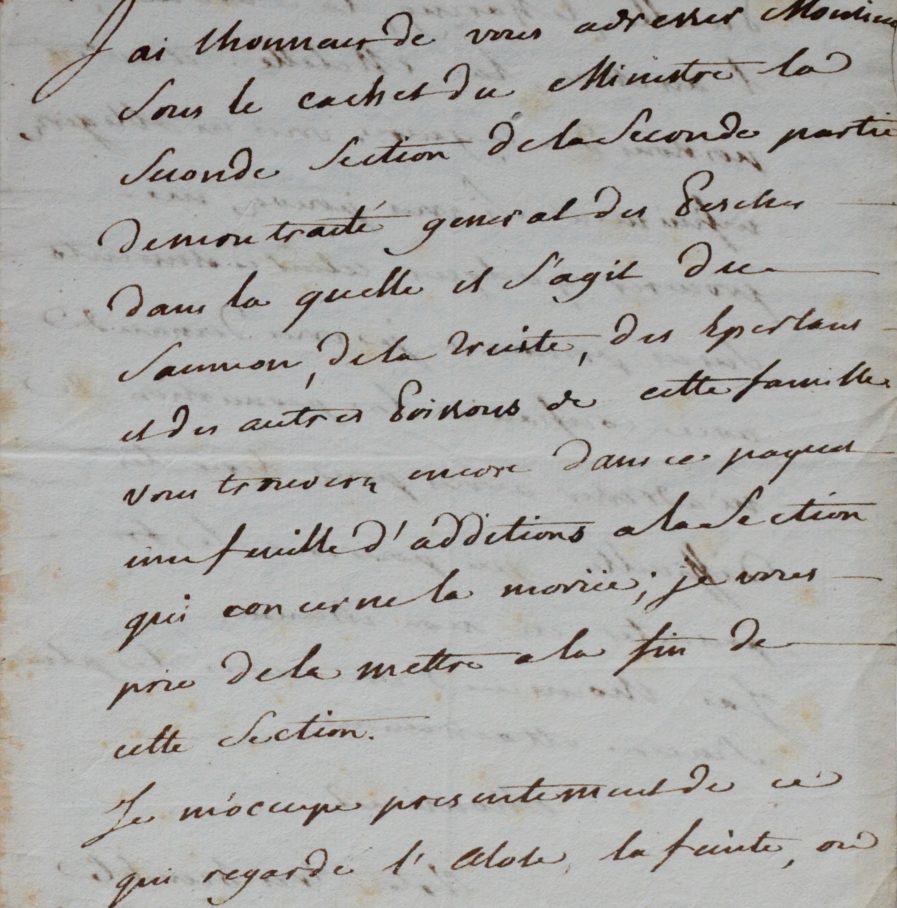 J'ai lhonneur de vous adresser Monsieur
sous le cachet du Ministre la
seconde section de la seconde partie
de mon traité general des Pesches
dans la quelle il s'agit du
saumon, de la truiste, des Eperlans
et des autres Poissons de cette famille
vous trouverez encore dans ce paquet
une feuille d'additions a la section
qui concerne la morüe; je vous
prie de la mettre a la fin de
cette section.
Je m'occupe presentement de ce
qui regarde l'Alose, la feinte, ou